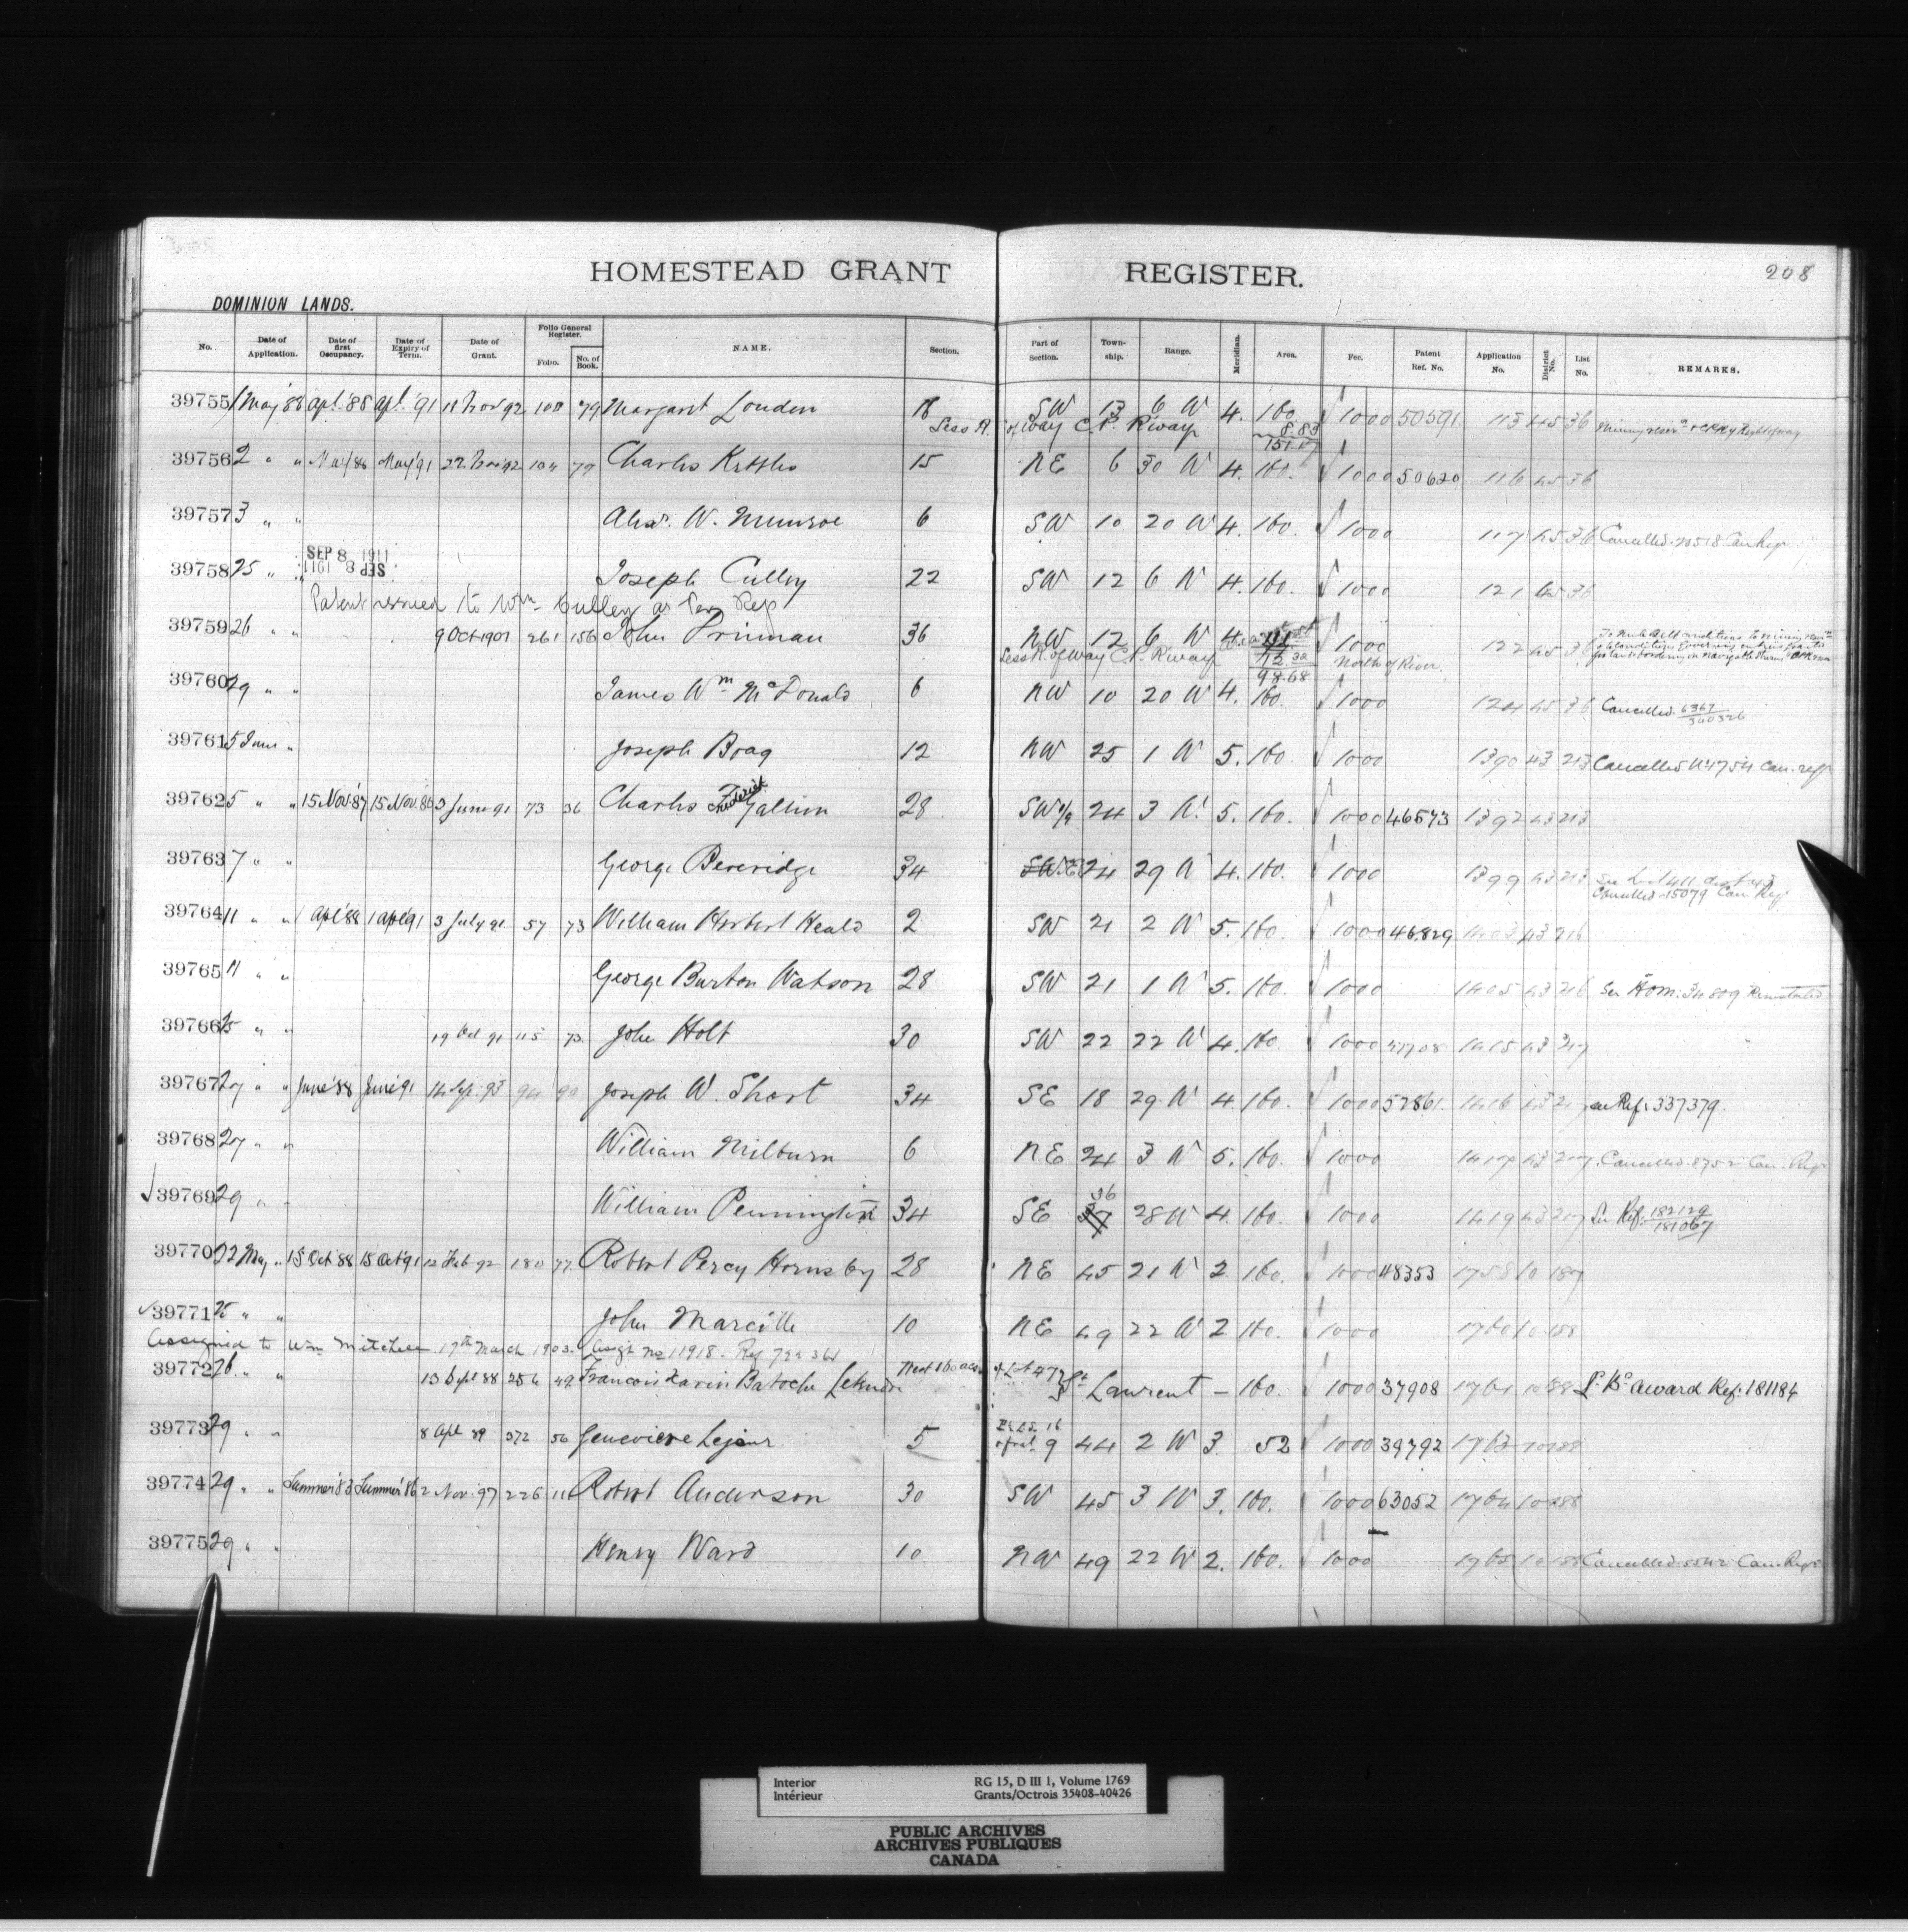 208
HOMESTEAD GRANT REGISTER.
DOMINION LANDS.
No. Date of Application. Date of first Occupancy. Date of Expiry of Term. Date of Grant. Folio General Register. Folio. No. of Book. NAME. Section. Part of Section. Township. Range. Meridian. Area. Fee. Patent Ref. No. Application No. District No. List No. REMARKS.
39755 1 May '88 Apl. '88 Apl. '91 11 Nov 92 100 79 Margaret Louden SW 13 6 W 4. 160. 1000 50591 113 45 36
Less R. of way C.P. R'way 8.83
151.17
39756 2 " " May '88 May '91 22 Nov 92 104 79 Charles 15 NE 6 30 W 4. 160. 1000 50620 116 45 36
39757 3 " " Alex. W. Munroe 6 SW 10 20 W 4. 160. 1000 117 45 36 Cancelled. 20518 Can Reg
SEP 8 1911
SEP 8 1911
39758 25 " " Joseph Culley 22 SW 12 6 W 4. 160. 1000 121 45 36
Patent issued to Wm. Culley as Per Rep
39759 26 " " 9 Oct 1907 261 156 John Prinman 36 NW 12 6 W 4. 1000 122 45 36
Less R. of way C.P. R'way 12.32 North of River.
98.68
39760 29 " " James Wm. McDonald 6 NW 10 20 W 4. 160. 1000 124 45 36 Cancelled. 6367 340326
39761 5 June " Joseph Boag 12 NW 25 1 W 5. 160. 1000 1390 43 213
39762 5 " " 15 Nov. '87 15 Nov. 3 June 91 73 36 Charles Frederick Gallion 28 SW 1/4 24 3 W. 5. 160. 1000 46573 1392 43 213
39763 7 " " George Beveridge 34 24 29 W 4. 160. 1000 1399 43 213 See List 411 dist 43
Cancelled 15079 Can Reg
39764 11 " " 1 Apl '88 1 Apl '91 3 July 91 57 73 William Herbert Heald 2 SW 21 2 W 5. 160. 1000 46829 1403 43 216
39765 11 " " George Burton Watson 28 SW 21 1 W 5. 160. 1000 1405 43 216 See Hom: 34809 Reinstated
39766 25 " " 19 Oct 91 115 73 John Holt 30 SW 22 22 W 4. 160. 1000 47708 1415 43 217
39767 27 " " June '88 June '91 14 Sep. 93 94 90 Joseph W. Short 34 SE 18 29 W 4. 160. 1000 57861 1416 43 217 see Ref: 337379.
39768 27 " " William Milburn 6 NE 24 3 W 5. 160. 1000 1417 43 217 Cancelled. 8752 Can. Reg
39769 29 " " William Pennington 34 SE 36 28 W 4. 160. 1000 1419 43 217 See Ref: 182129 181067
39770 22 May " 15 Oct 88 15 Oct 91 12 Feb 92 180 77 Robert Percy Hornsby 28 NE 45 21 W 2. 160. 1000 48353 1758 10 187
39771 25 " " John Marcille 10 NE 49 22 W 2 160. 1000 1760 10 188
Assigned to Wm Mitchell 17th March 1903. Assgt No 11918.
39772 26 " " 13 Sept 88 256 42 Francois Xavier Batoche Letendre West 160 acres of Lot 47 St Laurent - 160. 1000 37908 1761 10 188 award Ref: 181184
39773 29 " " 8 Apl 89 372 56 Genevieve 5 9 44 2 W 3. 52 1000 39792 1763 10 188
39774 29 " " Summer '83 Summer '86 2 Nov. 97 226 116 Robert Anderson 30 SW 45 3 W 3. 160. 1000 63052 1764 10 188
39775 29 " " Henry Ward 10 NW 49 22 W 2. 160. 1000 1765 10 188 Cancelled. Can. Reg
Interior RG 15, D III 1, Volume 1769
Intérieur Grants/Octrois 35408-40426
PUBLIC ARCHIVES
ARCHIVES PUBLIQUES
CANADA